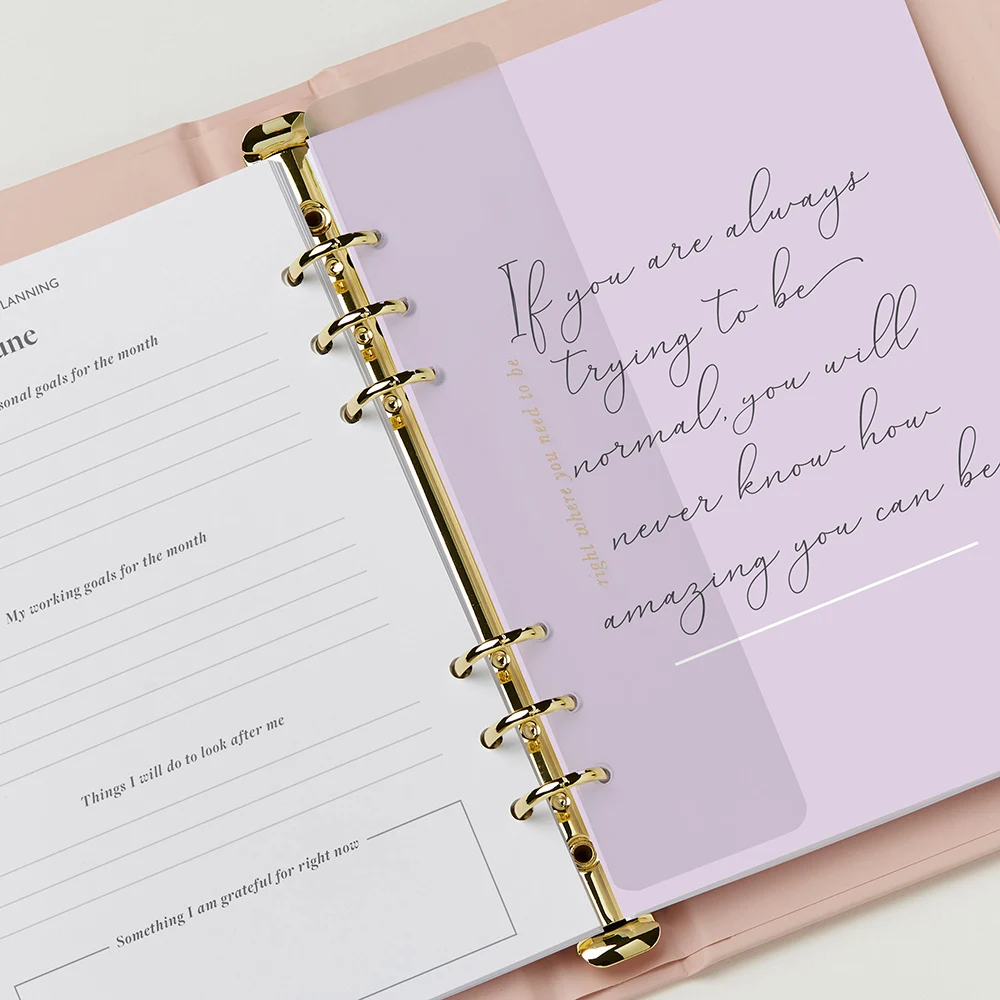 LANNING
une
sonal goals for the month
My working goals for the month
Things I will do to look after me
Something I am grateful for right now
right where you need to be
If you are always
trying to be
normal, you will
never know how
amazing you can be